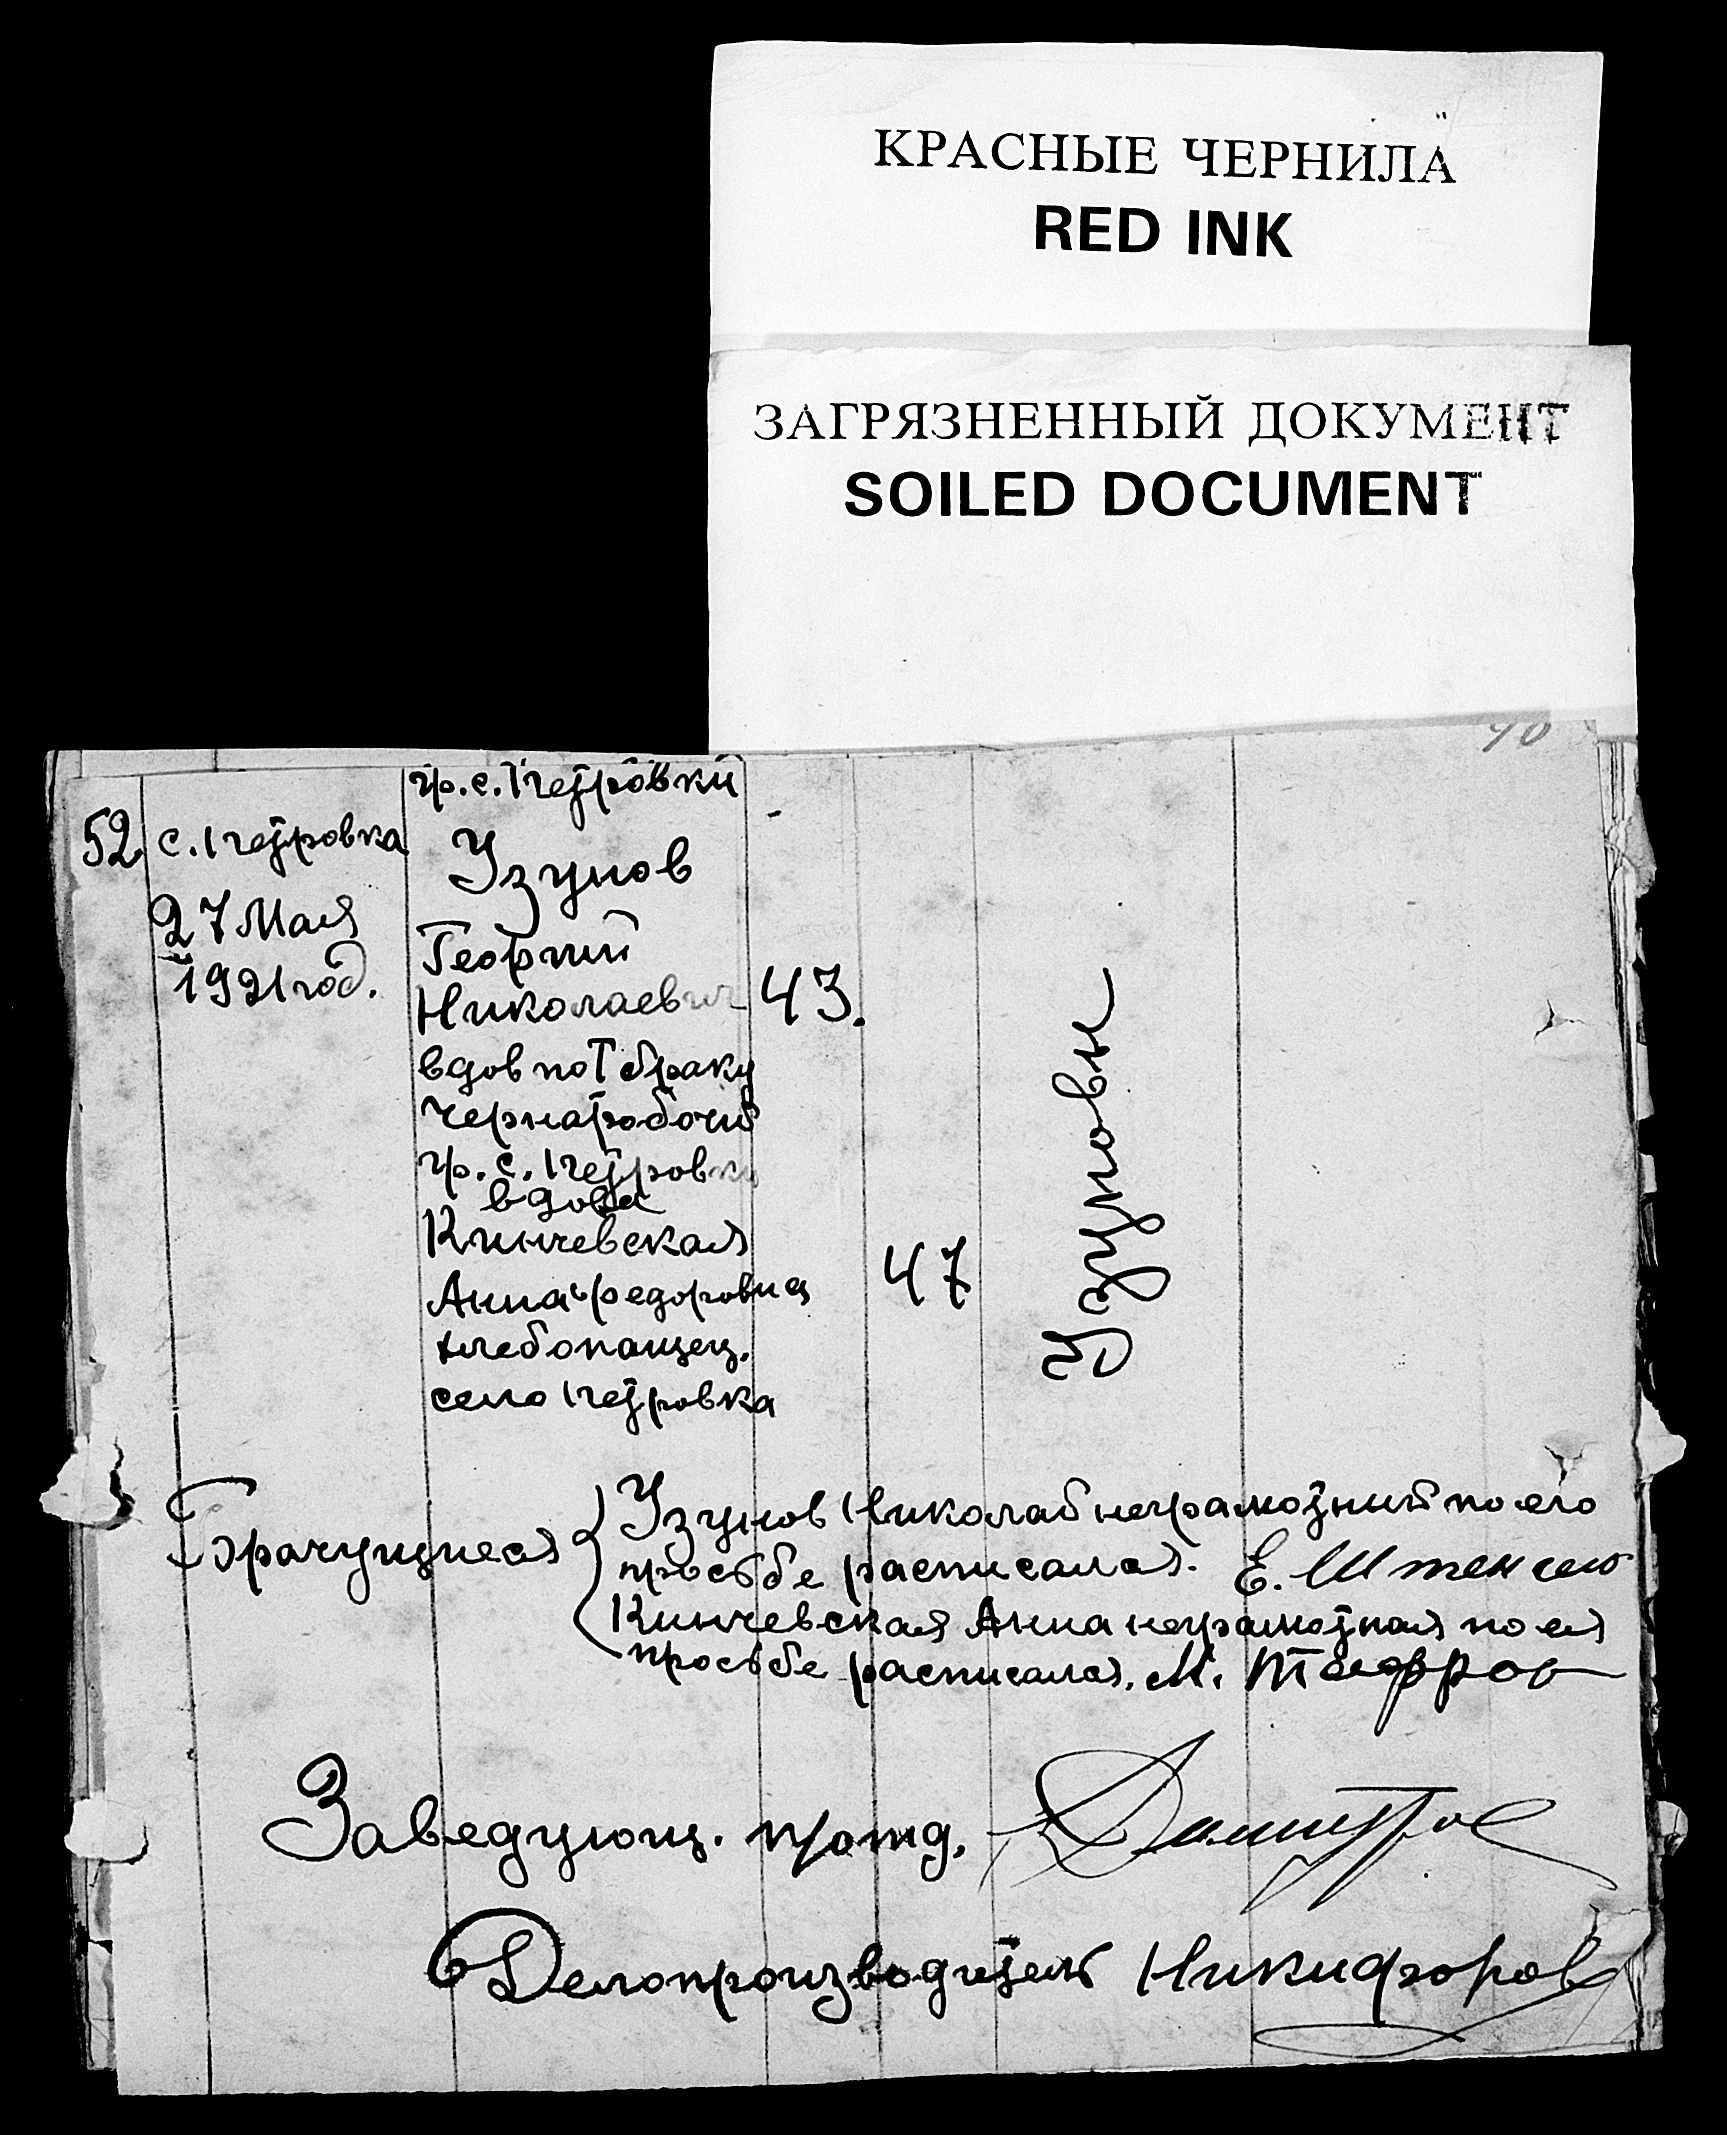 КРАСНЫЕ ЧЕРНИЛА
RED INK
ЗАГРЯЗНЕННЫЙ ДОКУМЕНТ
SOILED DOCUMENT
40
52. с. Петровка
27 Мая
1921 год.
гр. с. Петровки
Узунов
Георгий
Николаевич
43.
вдов по I браку
чернаробочий
гр. с. Петровки
вдова
Кинчевская
Анна Федоровна
47
хлебопащец.
село Петровка
Узуновы
Брачущиеся
Узунов Николай неграмотний по его
просьбе расписался. Е.
Кинчевская Анна неграмотная по ея
просьбе расписался. М.
Заведующ. протд. Димитров
Делопроизводитель Никифоров